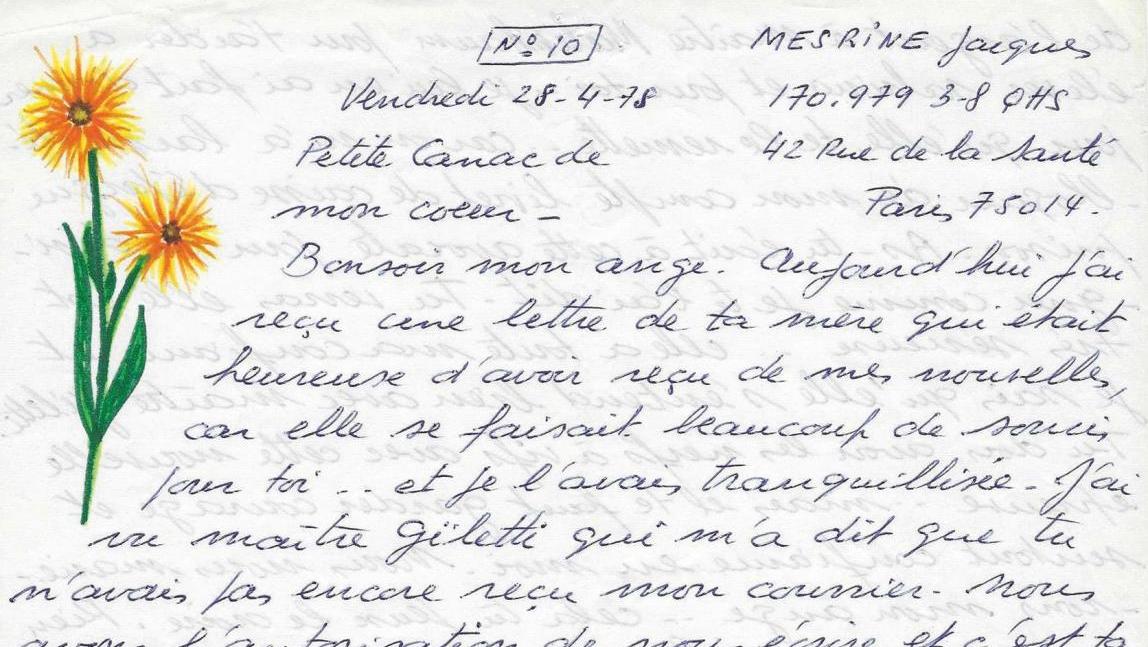 N° 10
MESRINE Jacques
Vendredi 28-4-78
170.979 3-8 QHS
Petite Canac de
42 Rue de la Santé
mon coeur -
Paris 75014.
Bonsoir mon ange. Aujourd'hui j'ai
reçu une lettre de ta mère qui était
heureuse d'avoir reçu de mes nouvelles,
car elle se faisait beaucoup de soucis
pour toi ... et je l'avais tranquillisée - J'ai
vu maître Giletti qui m'a dit que tu
n'avais pas encore reçu mon courrier - Nous
avons l'autorisation de nous écrire et c'est ta